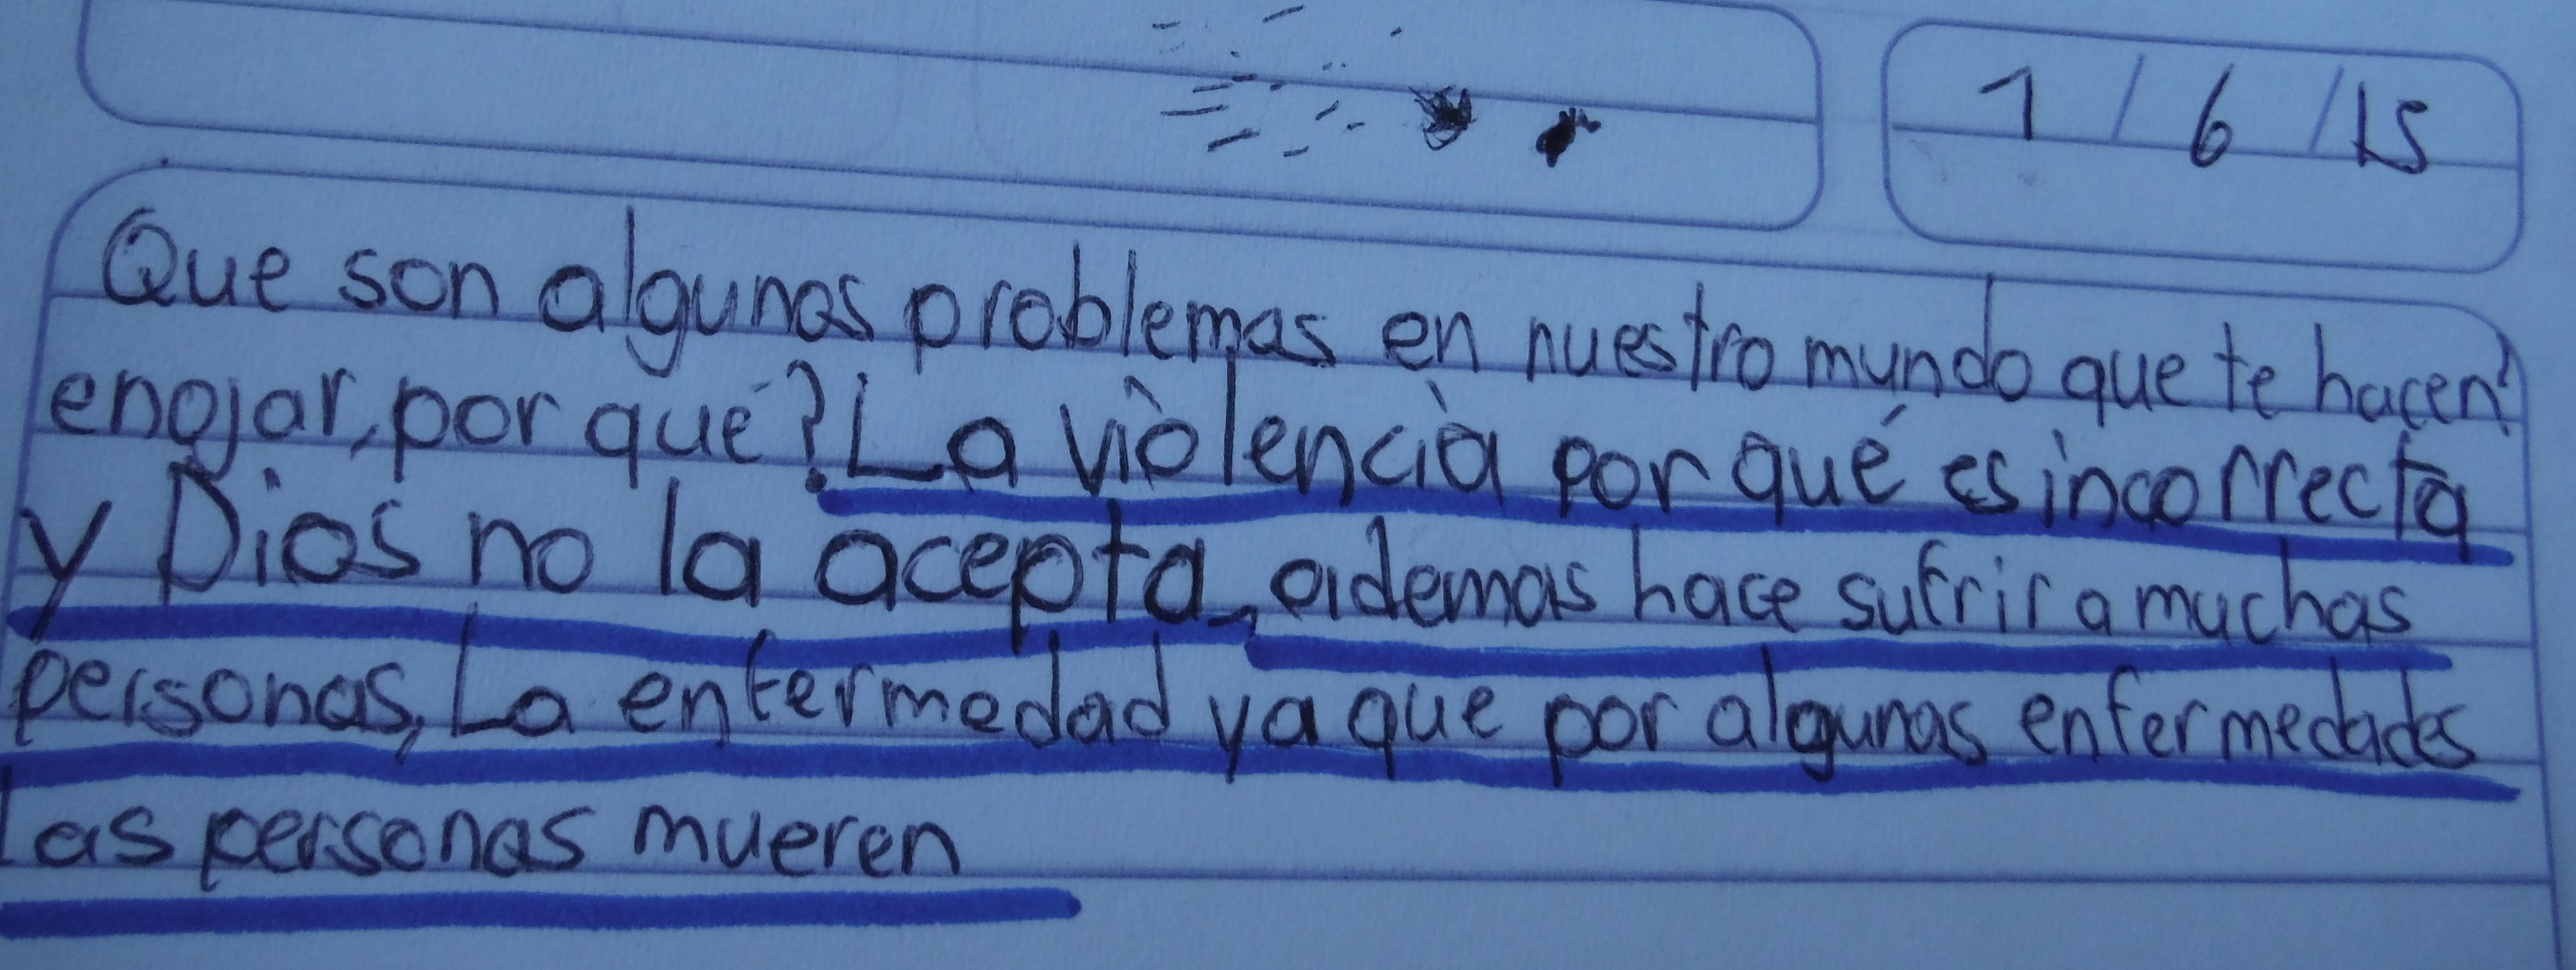 1/6/15
Que son algunos problemas en nuestro mundo que te hacen?
enojar, por qué? La violencia por qué es incorrecta
y Dios no la acepta, ademas hace sufrir a muchas
personas, La enfermedad ya que por algunas enfermedades
las personas mueren